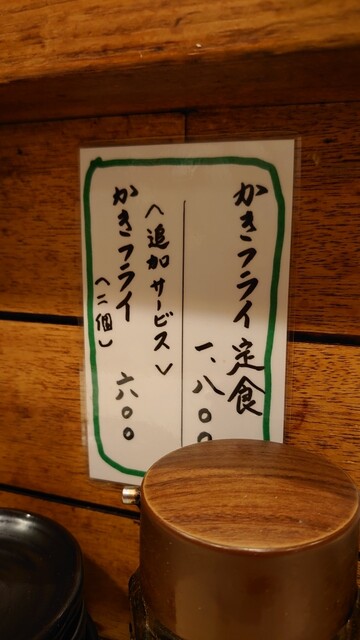 かきフライ定食
一、八〇〇
〈追加サービス〉
かきフライ
(二個)
六〇〇